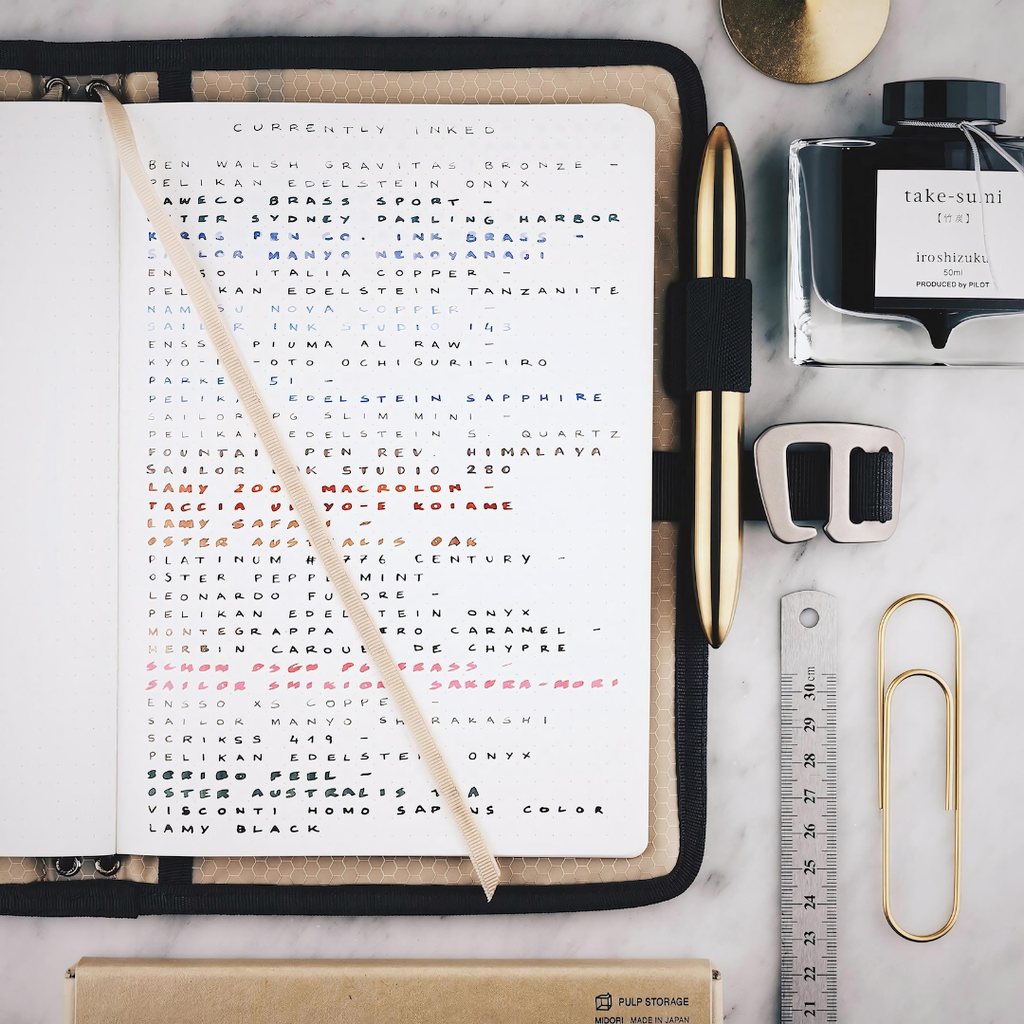 CURRENTLY INKED
BEN WALSH GRAVITAS BRONZE -
PELIKAN EDELSTEIN ONYX
KAWECO BRASS SPORT -
OSTER SYDNEY DARLING HARBOR
KARAS PEN CO. INK BRASS -
SAILOR MANYO NEKOYANAGI
ENSSO ITALIA COPPER -
PELIKAN EDELSTEIN TANZANITE
NAMISU NOVA COPPER -
SAILOR INK STUDIO 143
ENSSO PIUMA AL RAW -
KYO-IRO-OTO OCHIGURI-IRO
PARKER 51 -
PELIKAN EDELSTEIN SAPPHIRE
SAILOR PG SLIM MINI -
PELIKAN EDELSTEIN S. QUARTZ
FOUNTAIN PEN REV. HIMALAYA
SAILOR INK STUDIO 280
LAMY 2000 MACROLON -
TACCIA UKIYO-E KOIAME
LAMY SAFARI -
OSTER AUSTRALIS OAK
PLATINUM #3776 CENTURY -
OSTER PEPPERMINT
LEONARDO FURORE -
PELIKAN EDELSTEIN ONYX
MONTEGRAPPA ZERO CARAMEL -
HERBIN CAROUBE DE CHYPRE
SCHON DSGN PG BRASS -
SAILOR SHIKIORI SAKURA-MORI
ENSSO XS COPPER -
SAILOR MANYO SHIRAKASHI
SCRIKSS 419 -
PELIKAN EDELSTEIN ONYX
SCRIBO FEEL -
OSTER AUSTRALIS TEA
VISCONTI HOMO SAPIENS COLOR
LAMY BLACK
take-sumi
【竹炭】
iroshizuku
50ml
PRODUCED by PILOT
30 cm
29
28
27
26
25
24
23
22
21
PULP STORAGE
MIDORI MADE IN JAPAN